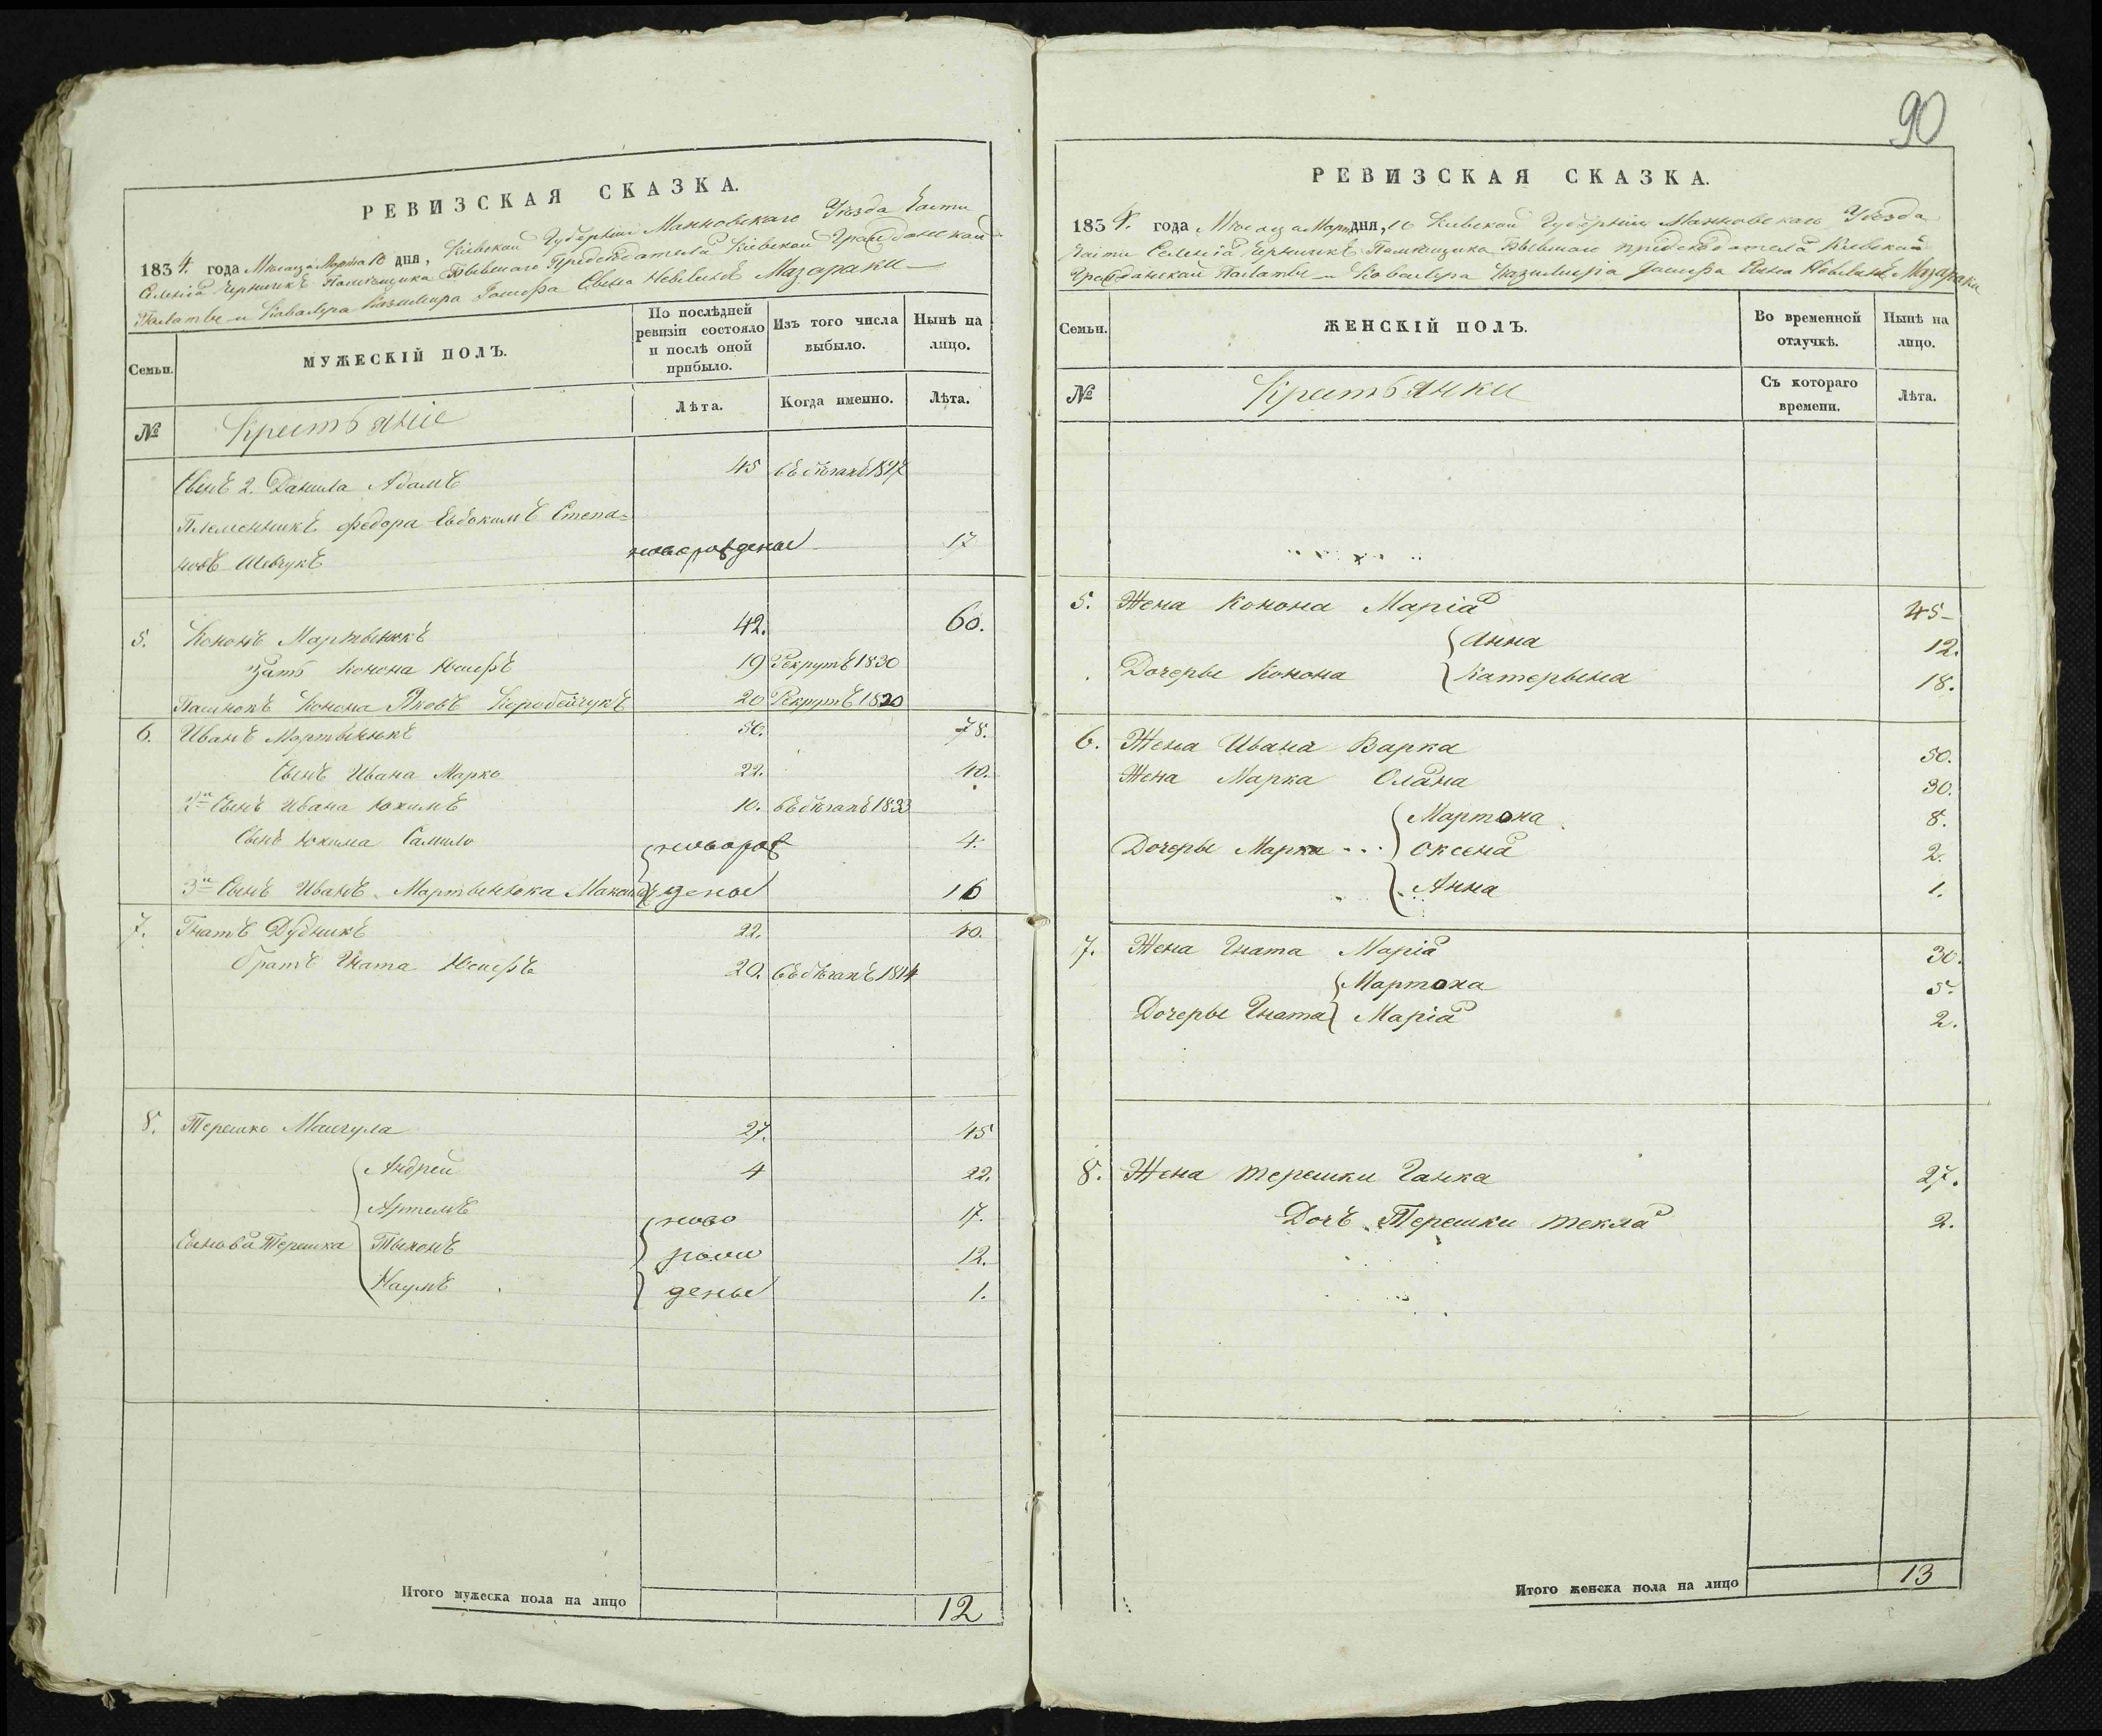 90
РЕВИЗСКАЯ СКАЗКА.
1834. года Месяца Марта 10 дня, Кіевской Губерніи Махновскаго Уезда Части
Селенія Чернычкъ Помещика Бывшаго Председателя Кіевской Гражданской
Палаты и Кавалера Казимира Іосифа Сына Мазараки
Семьи.
МУЖЕСКІЙ ПОЛЪ.
По послѣдней ревизіи состояло и послѣ оной прибыло.
Изъ того числа выбыло.
Нынѣ на лицо.
№
Крестьяніе
Лѣта.
Когда именно.
Лѣта.
Сынъ 2. Данила Адамъ 45 въ бѣгахъ 1827
Племенникъ Федора Евдокимъ Степа-
новъ Шевчукъ новорожденые 17
5. Кононъ Мартынюкъ 42. 60.
Зять Конона Юсифъ 19 Рекрутъ 1830
Пасинокъ Конона Яковъ Коробейчукъ 20 Рекрутъ 1820
6. Иванъ Мартынюкъ 50. 78.
Сынъ Ивана Марко 22. 40.
2й Сынъ Ивана Юхимъ 10. въ бѣгахъ 1833
Сынъ Юхима Самило новорож 4.
3й Сынъ Иванъ Мартынюка деные 16
7. Гнатъ Дубникъ 22. 40.
братъ Гната Юсифъ 20. въ бѣгахъ 1814
8. Терешко Манчула 27. 45
Андрей 4 22.
Артемъ ново 17.
Сынова Терешка Тыхонъ рож 12.
Наумъ деные 1.
Итого мужеска пола на лицо 12
РЕВИЗСКАЯ СКАЗКА.
1834. года Месяца Марта дня, 10 Кіевской Губерніи Махновскаго Уѣзда
Части Селенія Чернычкъ Помещика Бывшаго председателя Кіевской
Гражданской Палаты и Кавалера Казимира Іосифа Сына Мазараки
Семьи.
ЖЕНСКІЙ ПОЛЪ.
Во временной отлучкѣ.
Нынѣ на лицо.
№
Крестьянки
Съ котораго времени.
Лѣта.
5. Жена Конона Марія 45
Анна 12.
Дочеры Конона Катерына 18.
6. Жена Ивана Варка 50.
Жена Марка Оляна 30.
Мартоха 8.
Дочеры Марка Оксеня 2.
Анна 1.
7. Жена Гната Марія 30.
Мартоха 5.
Дочеры Гната Марія 2.
8. Жена терешки Ганка 27.
Дочъ Терешки текля 2.
Итого женска пола на лицо 13